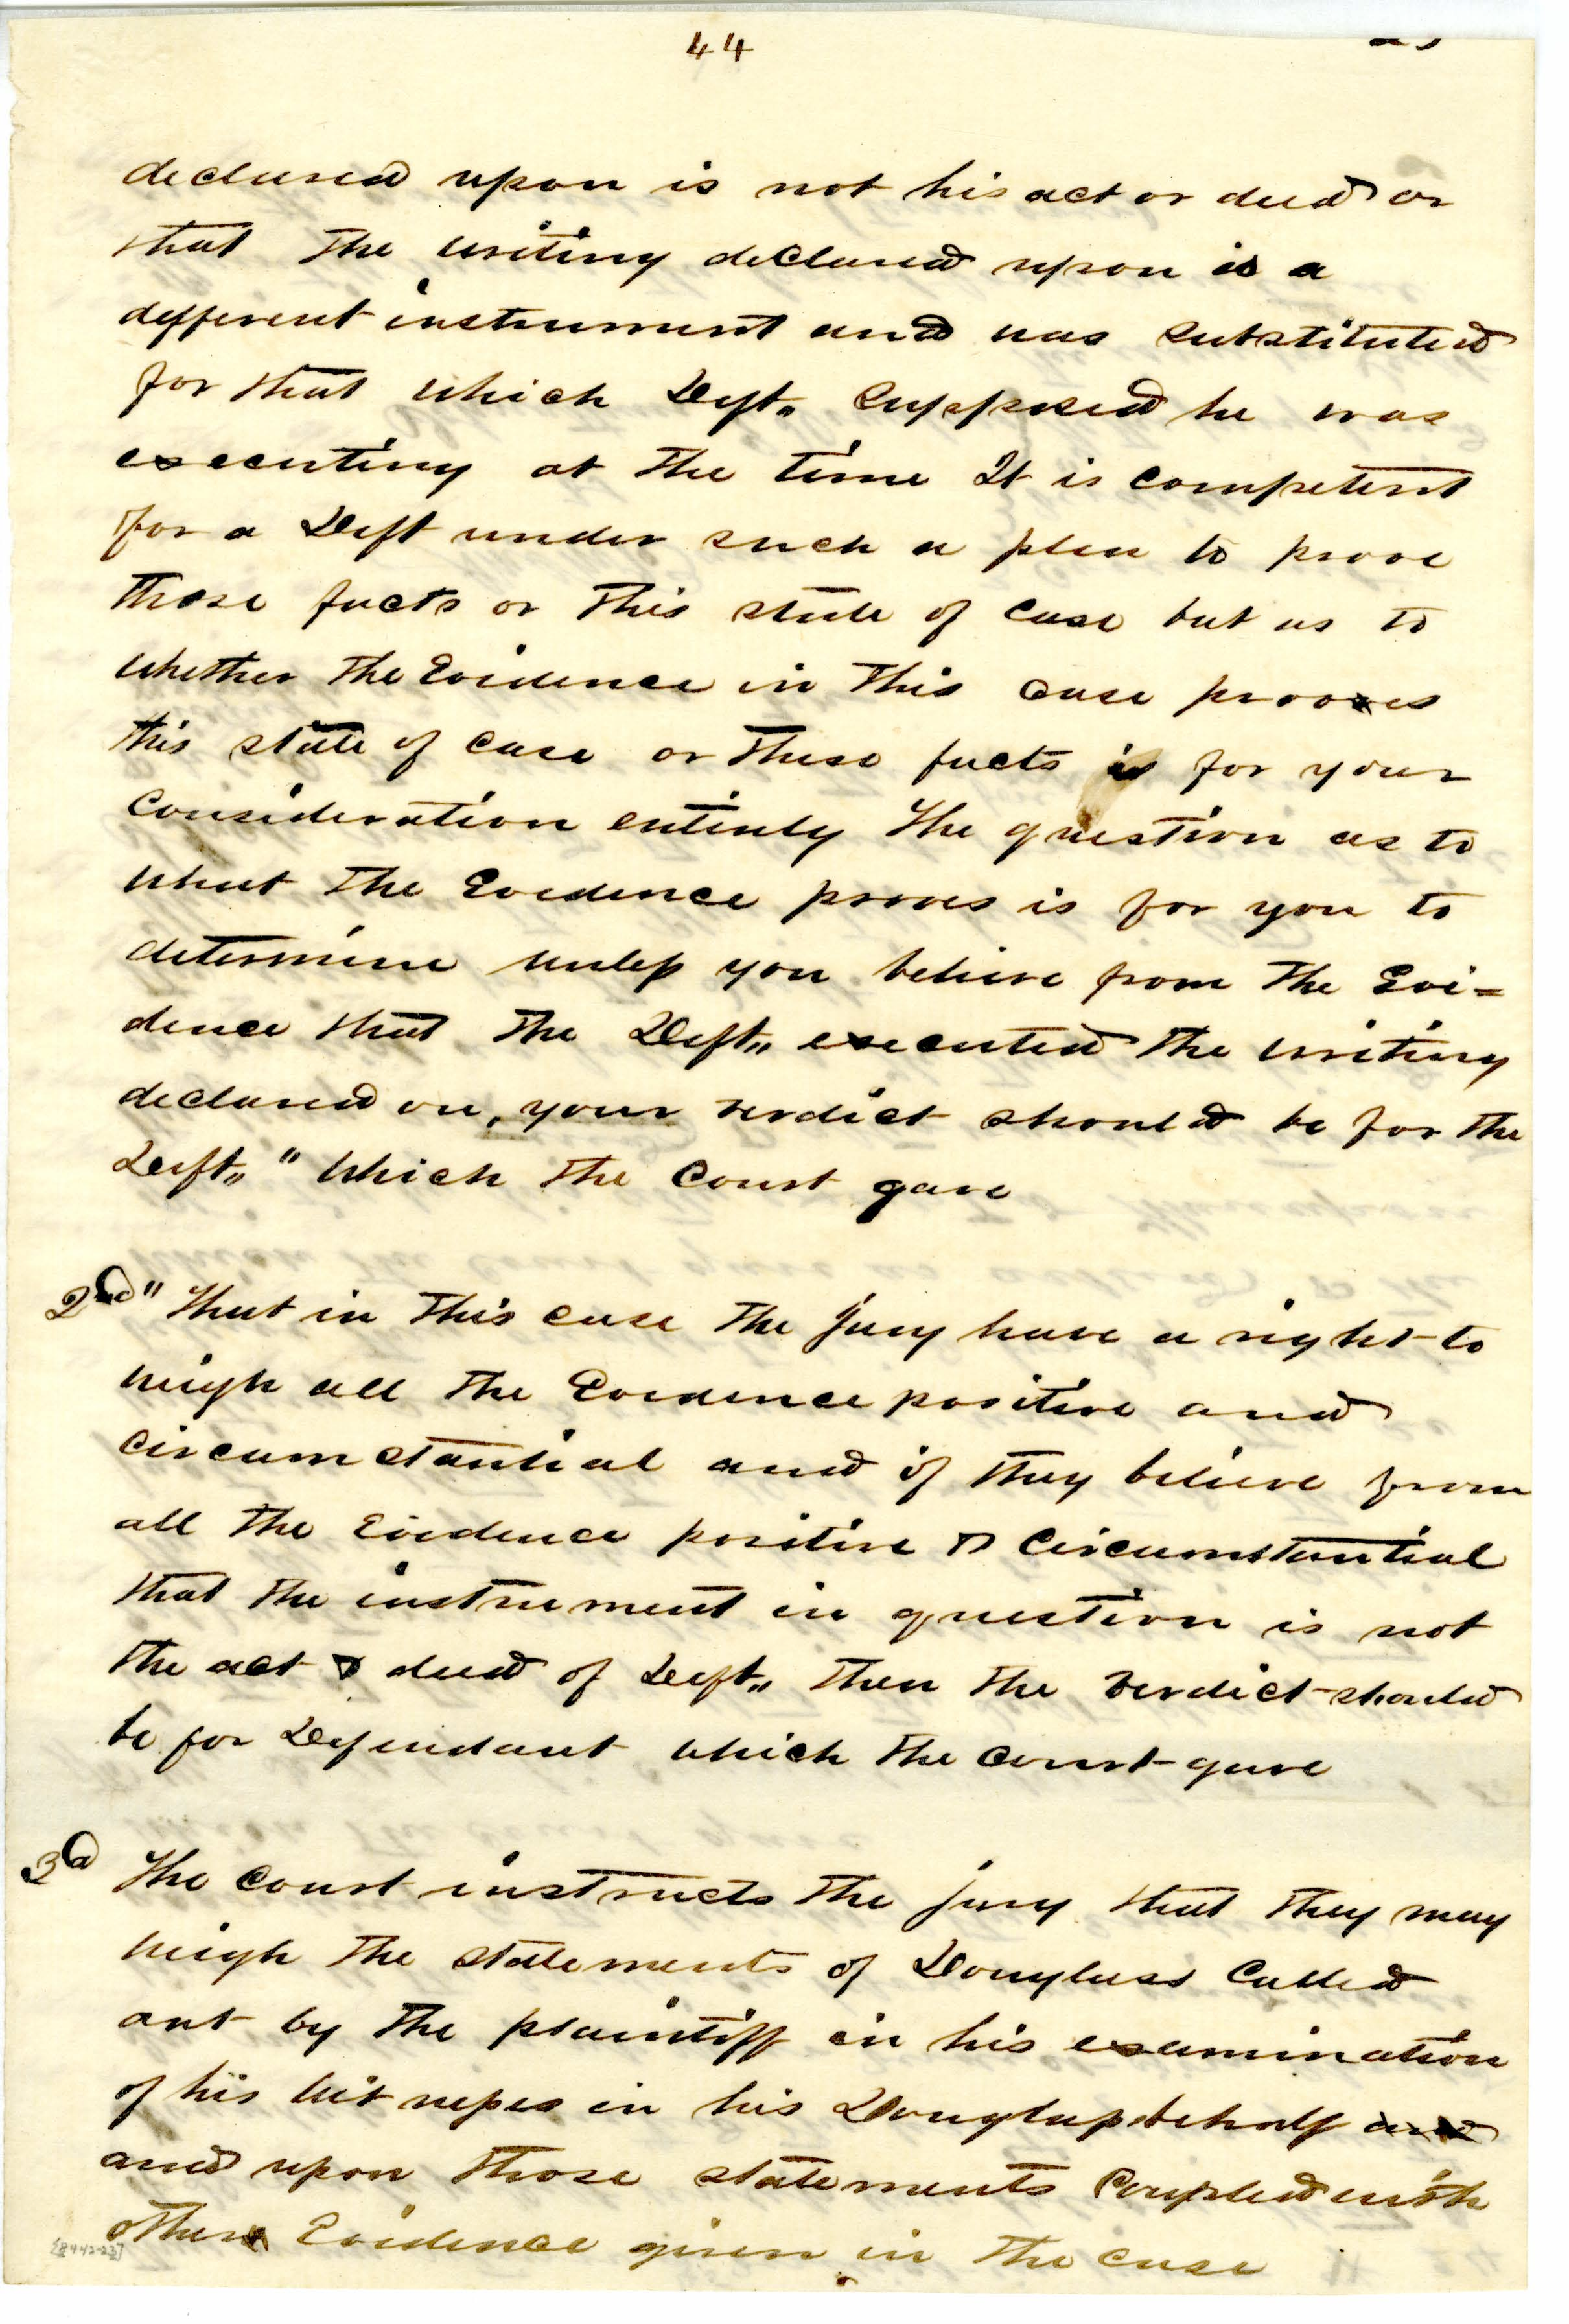 44
declared upon is not his act or deed or
that the writing declared upon is a
different instrument and was substituted
for that which Deft,, supposed he was
executing at the time It is competent
for a Deft under such a plea to prove
those facts or this state of case but as to
whether the Evidence in this case proves
this state of case or these facts is for your
consideration entirely The question as to
what the Evidence proves is for you to
determine unless you believe from the Evi=
dence that the Deft,, executed the writing
declared on, your verdict should be for the
Deft,," Which the Court gave
2nd " That in this case the jury have a right to
weigh all the Evidence positive and
circumstantial and if they believe from
all the Evidence positive & circumstantial
that the instrument in question is not
the act & deed of Deft,, then the verdict should
be for Defendant which the Court gave
3d The Court instructs the jury that they may
weigh the statements of Douglass Called
out by the plaintiff in his examination
of his witnesses in his Douglass behalf and
and upon those statements Coupled with
other Evidence given in the case
[8442-23]